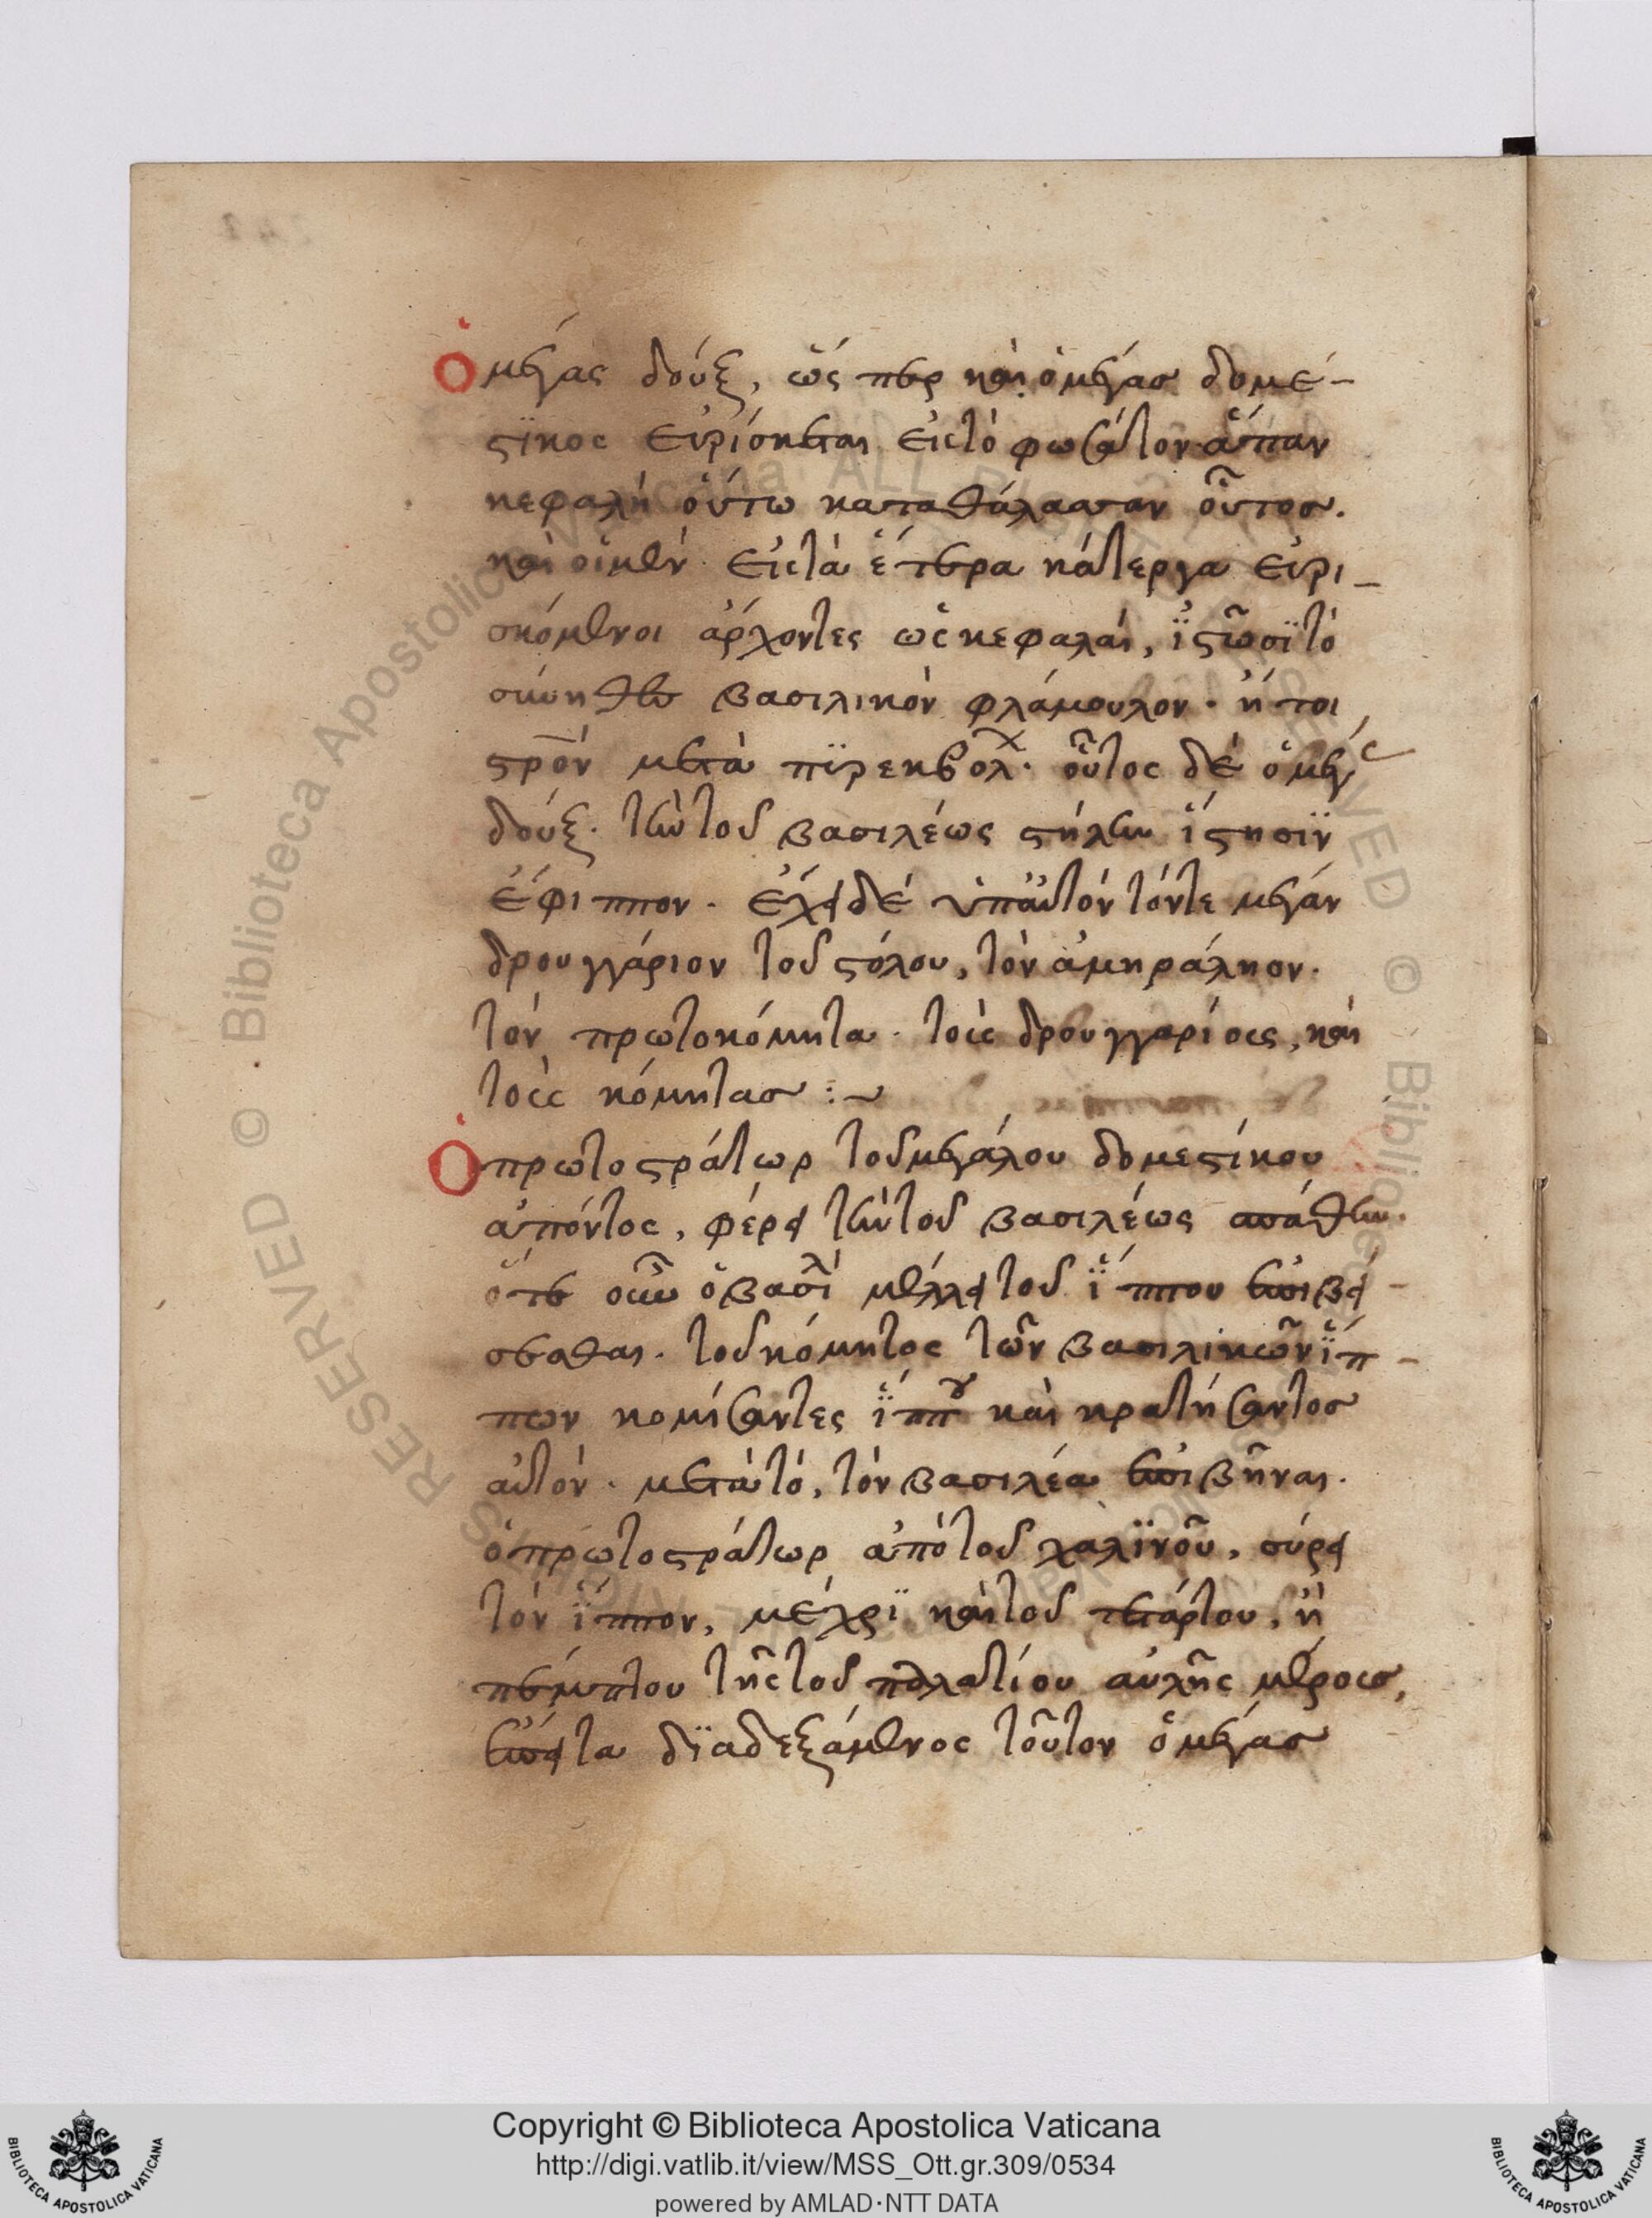 Ὁ μέγας δούξ, ὥς περ καὶ ὁ μέγας δομέ-
στϊκος εὑρίσκεται εἰς τὸ φωσάτον ἅπαν
κεφαλὴ οὕτω καταθάλασσαν οὗτος.
καὶ οἱ μὲν εἰς τὰ ἕτερα κάτεργα εὑρι-
σκόμενοι ἄρχοντες ὡς κεφαλαὶ, ϊστῶσϊ τὸ
σύνηθες βασιλικὸν φλάμουλον· ἤτοι
στρὸν μετὰ πϊρεκβολ· οὗτος δὲ ὁ μέγς
δούξ· τὴν τοῦ βασιλέως στήλην ἵστησϊν
ἔφιππον· ἔχει δὲ ὑπ' αὐτὸν τόν τε μέγαν
δρουγγάριον τοῦ στόλου, τὸν ἀμηράλην·
τὸν πρωτοκόμητα· τοὺς δρουγγαρίους, καὶ
τοὺς κόμητας :~
Ὁ πρωτοστράτωρ τοῦ μεγάλου δομεστίκου
ἀπόντος, φέρει τὴν τοῦ βασιλέως σπάθην·
ὅτε οὖν ὁ βασιλ μέλλει τοῦ ἵππου ἐπιβή-
σεσθαι· τοῦ κόμητος τῶν βασιλικῶν ἵπ-
πων κομίσαντες ἵππου καὶ κρατήσαντος
αὐτόν· μετὰ τὸ, τὸν βασιλέα ἐπιβῆναι·
ὁ πρωτοστράτωρ ἀπὸ τοῦ χαλϊνοῦ, σύρει
τὸν ἵππον, μέχρϊ καὶ τοῦ τετάρτου, ἢ
πέμπτου τῆς τοῦ παλατίου αὐλῆς μέρους,
ἔπειτα δϊαδεξάμενος τοῦτον ὁ μέγας
Copyright © Biblioteca Apostolica Vaticana
http://digi.vatlib.it/view/MSS_Ott.gr.309/0534
powered by AMLAD·NTT DATA